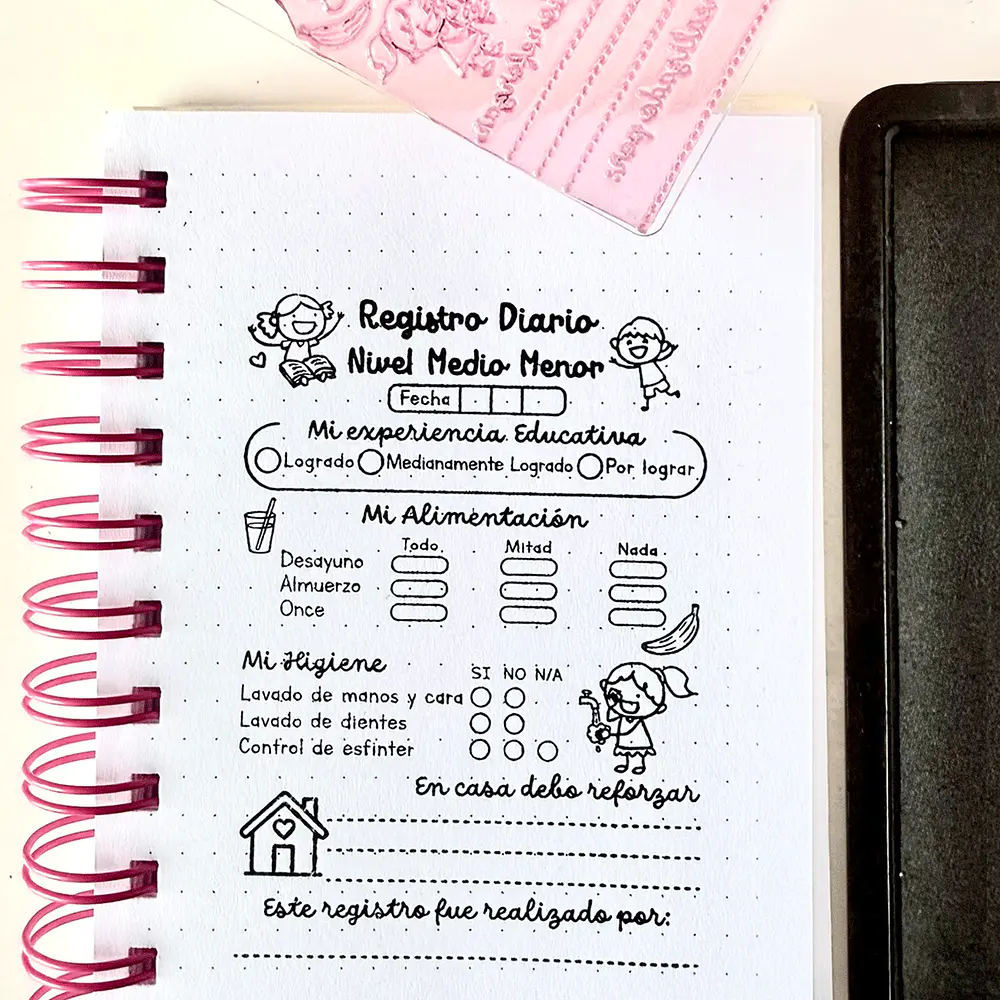 Registro Diario
Nivel Medio Menor
Fecha
Mi experiencia Educativa
Logrado Medianamente Logrado Por lograr
Mi Alimentación
Todo Mitad Nada
Desayuno
Almuerzo
Once
Mi Higiene
SI NO N/A
Lavado de manos y cara
Lavado de dientes
Control de esfinter
En casa debo reforzar
Este registro fue realizado por: